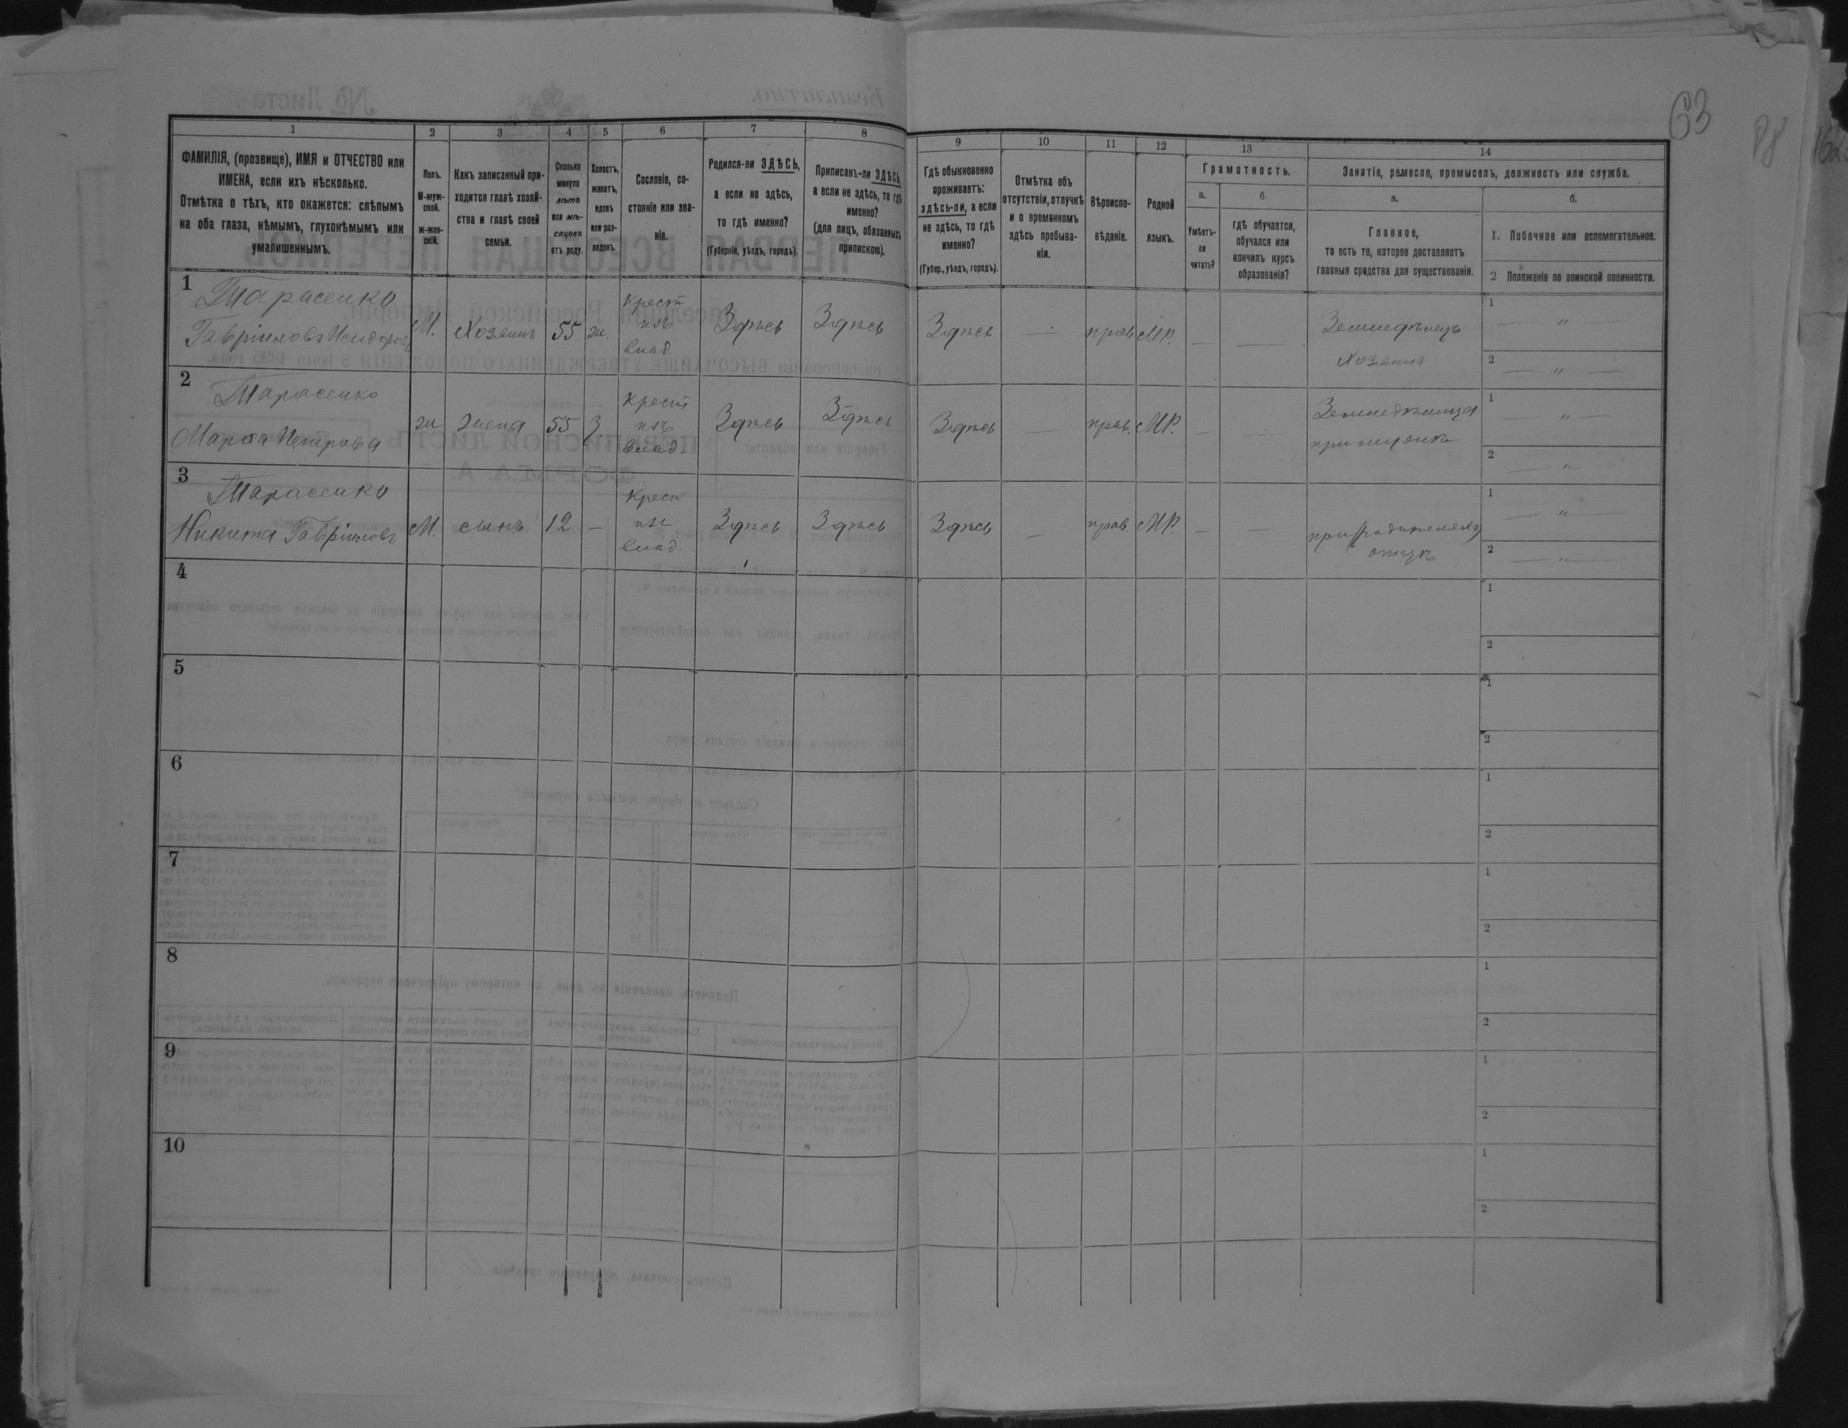 63
88
1 2 3 4 5 6 7 8 9 10 11 12 13 14
ФАМИЛІЯ, (прозвище), ИМЯ и ОТЧЕСТВО или
ИМЕНА, если ихъ нѣсколько.
Отмѣтка о тѣхъ, кто окажется: слѣпымъ
на оба глаза, нѣмымъ, глухонѣмымъ или
умалишеннымъ.
Полъ.
М-муж-
ской.
ж-жен-
скій.
Какъ записанный при-
ходится главѣ хозяй-
ства и главѣ своей
семьи.
Сколько
минуло
лѣтъ
или мѣ-
сяцевъ
отъ роду.
Холостъ,
женатъ,
вдовъ
или раз-
веденъ.
Сословіе, со-
стояніе или зва-
ніе.
Родился-ли ЗДѢСЬ,
а если не здѣсь,
то гдѣ именно?
(Губернія, уѣздъ, городъ).
Приписанъ-ли ЗДѢСЬ,
а если не здѣсь, то гдѣ
именно?
(для лицъ, обязанныхъ
припискою).
Гдѣ обыкновенно
проживаетъ:
здѣсь-ли, а если
не здѣсь, то гдѣ
именно?
(Губер., уѣздъ, городъ).
Отмѣтка объ
отсутствіи, отлучкѣ
и о временномъ
здѣсь пребыва-
ніи.
Вѣроиспо-
вѣданіе.
Родной
языкъ.
Грамотность.
а.
Умѣетъ-
ли
читать?
б.
гдѣ обучается,
обучался или
кончилъ курсъ
образованія?
Занятія, ремесло, промыселъ, должность или служба.
а.
Главное,
то есть то, которое доставляетъ
главныя средства для существованія.
б.
1. Побочное или вспомогательное.
2 Положеніе по воинской повинности.
1
Тарасенко
Гавріиловъ Исидоров
М. Хозяинъ 55 ж.
Крест
изъ
влад.
Здѣсь Здѣсь Здѣсь — прав. МР. — —
Земледѣлецъ
Хозяинъ
1 — „ —
2 — „ —
2
Тарасенко
Марфа Петрова
ж жена 55 з
Крест
изъ
влад.
Здѣсь Здѣсь Здѣсь — прав. МР. — —
Земледѣлица
1 — „ —
2 — „ —
3
Тарасенко
Никита Гавріиловъ
М. сынъ 12 —
Крест
изъ
влад.
Здѣсь Здѣсь Здѣсь — прав. МР. — —
при родителяхъ
1 — „ —
2 — „ —
4
1
2
5
1
2
6
1
2
7
1
2
8
1
2
9
1
2
10
1
2